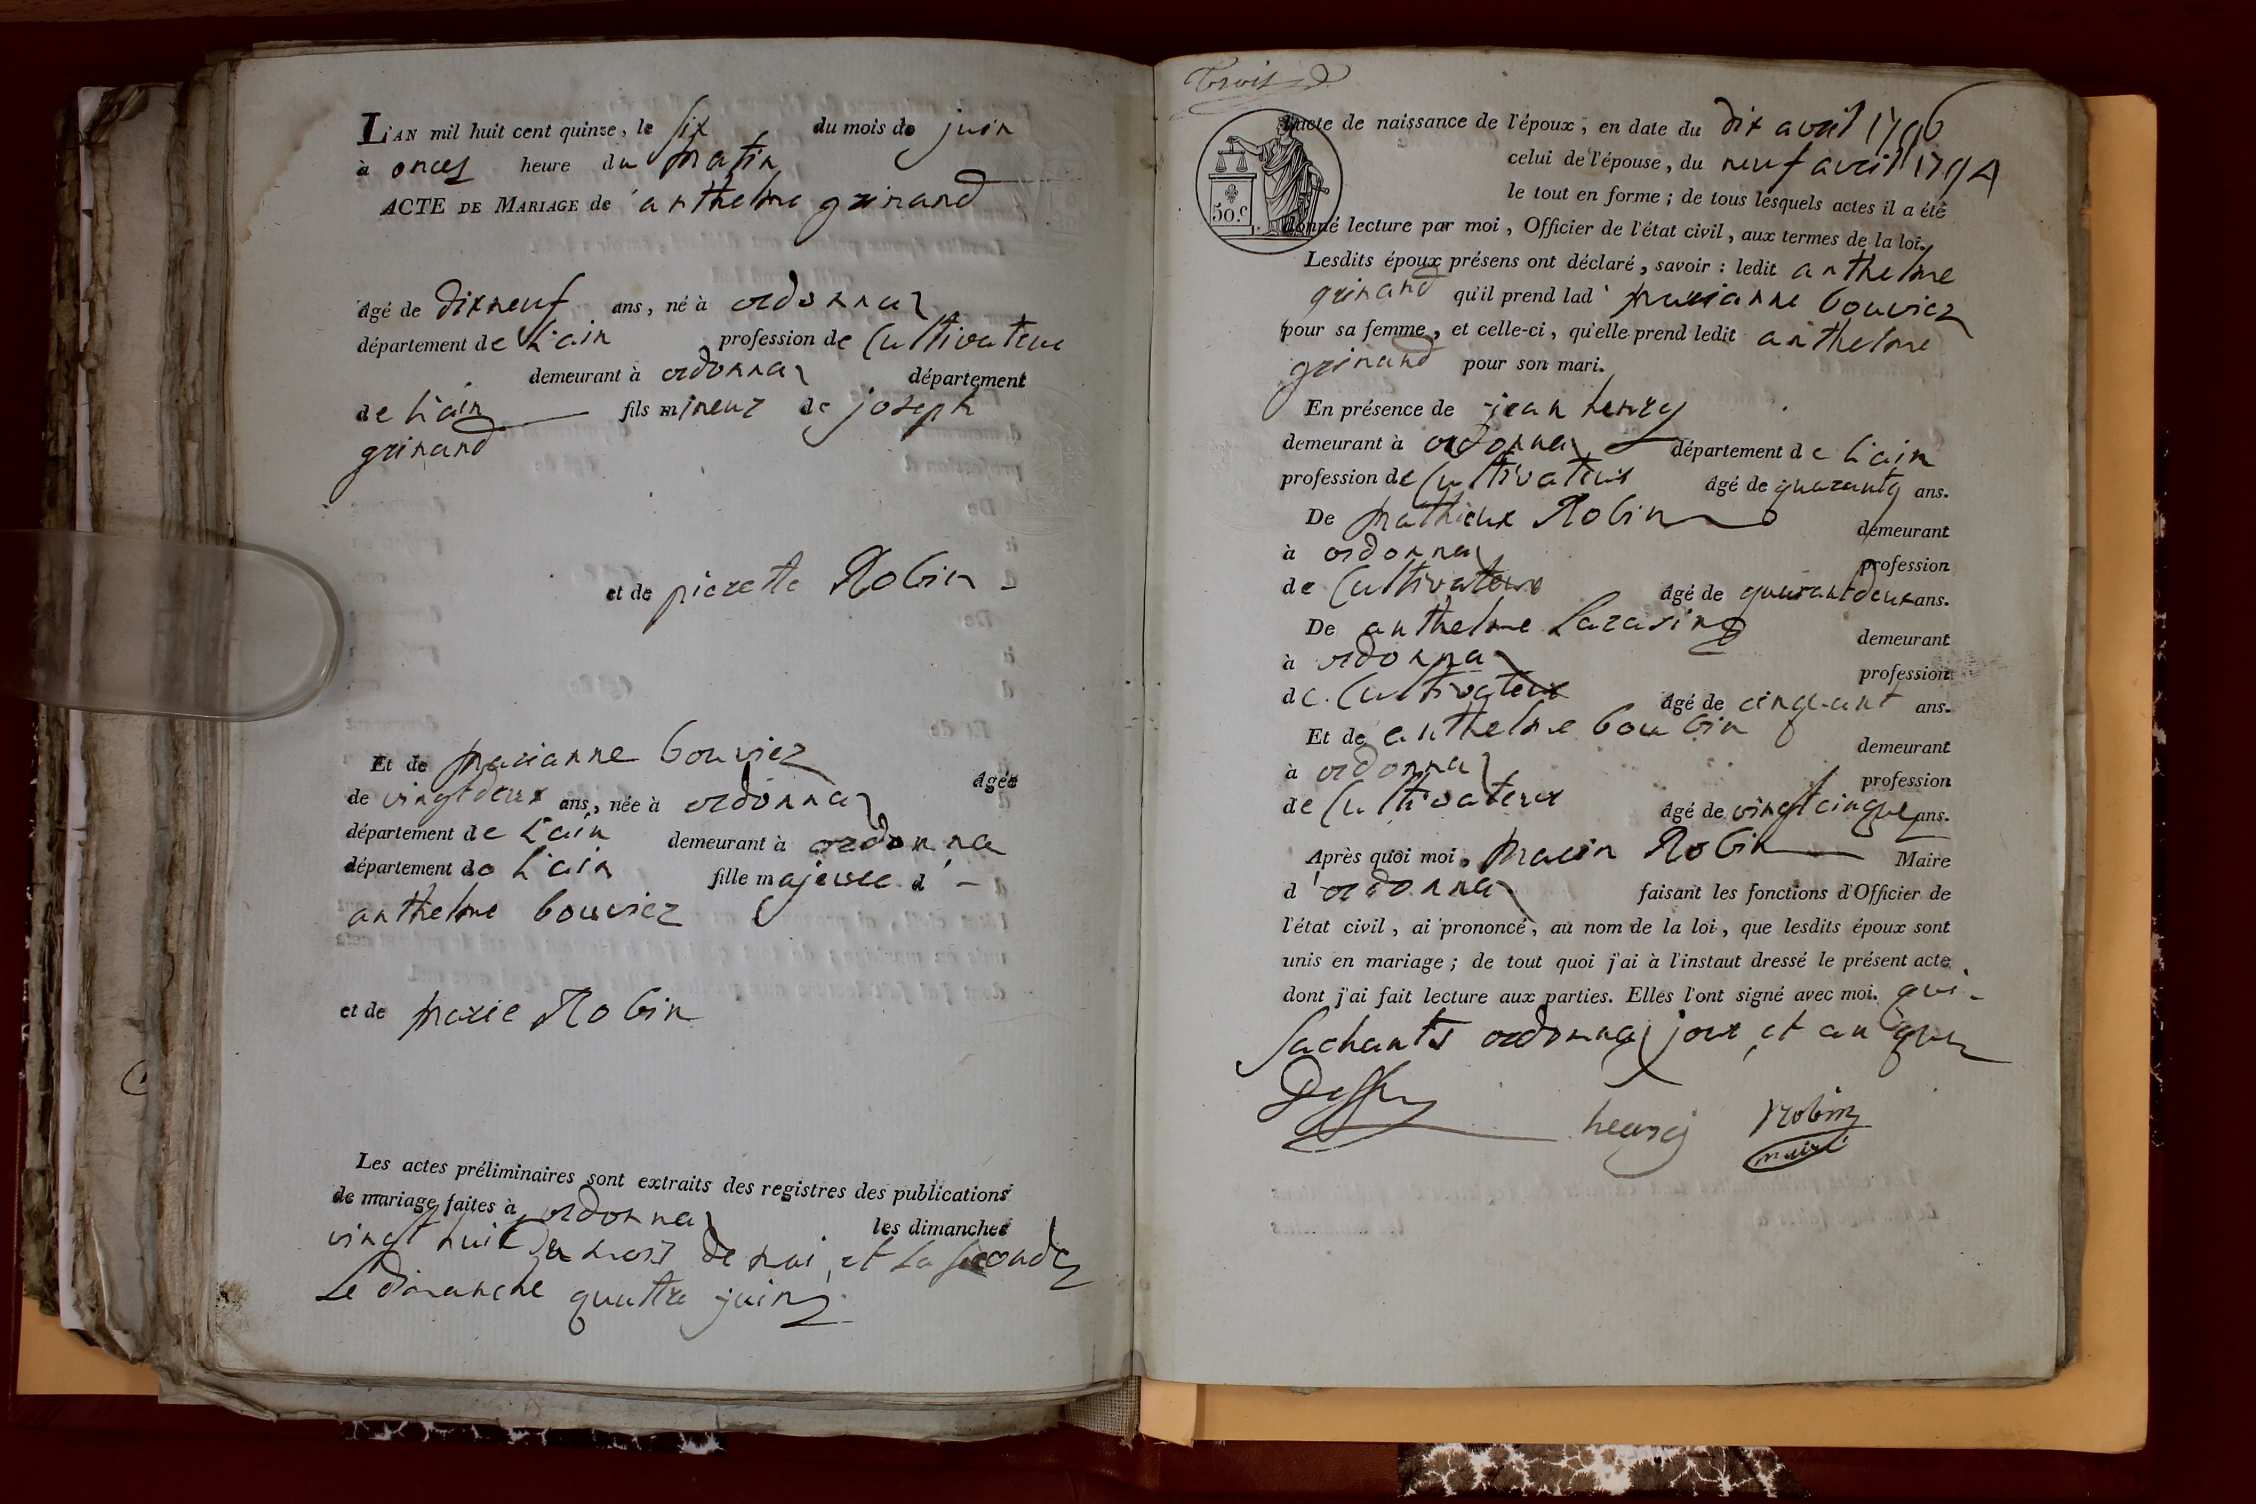 L'AN mil huit cent quinze, le six du mois de juin
à onces heure du matin
ACTE DE MARIAGE de anthelme grinand
âgé de dixneuf ans, né à ordonnaz
département de L'ain profession de Cultivateur
demeurant à ordonnaz département
de L'ain fils mineur de joseph
grinand
et de pierette Robin
Et de marianne bouvier âgée
de vingtdeux ans, née à ordonnaz
département de L'ain demeurant à ordonna
département de L'ain fille majeure d'
anthelme bouvier
et de marie Robin
Les actes préliminaires sont extraits des registres des publications
de mariage faites à ordonnaz les dimanches
vingt huit du mois de mai, et La seconde
Le dimanche quattre juin
trois
L'acte de naissance de l'époux, en date du dix avril 1796
celui de l'épouse, du neuf avril 1794
le tout en forme; de tous lesquels actes il a été
50.c
donné lecture par moi, Officier de l'état civil, aux termes de la loi.
Lesdits époux présens ont déclaré, savoir : ledit anthelme
grinand qu'il prend lad' marianne bouvier
pour sa femme, et celle-ci, qu'elle prend ledit anthelme
grinand pour son mari.
En présence de jean henry
demeurant à ordonnaz département de L'ain
profession de Cultivateur âgé de quarante ans.
De mathieux Robin demeurant
à ordonnaz profession
de Cultivateur âgé de quarantdeux ans.
De anthelme Sarasin demeurant
à ordonnaz profession
de Cultivateur âgé de cinquant ans.
Et de anthelme boubin demeurant
à ordonnaz profession
de Cultivateur âgé de vingtcinque ans.
Après quoi moi, marin Robin Maire
d'ordonnaz faisant les fonctions d'Officier de
l'état civil, ai prononcé, au nom de la loi, que lesdits époux sont
unis en mariage; de tout quoi j'ai à l'instaut dressé le présent acte
dont j'ai fait lecture aux parties. Elles l'ont signé avec moi. qui
Sachants ordonnaz jour et an que
Dessus henry Robin
maire